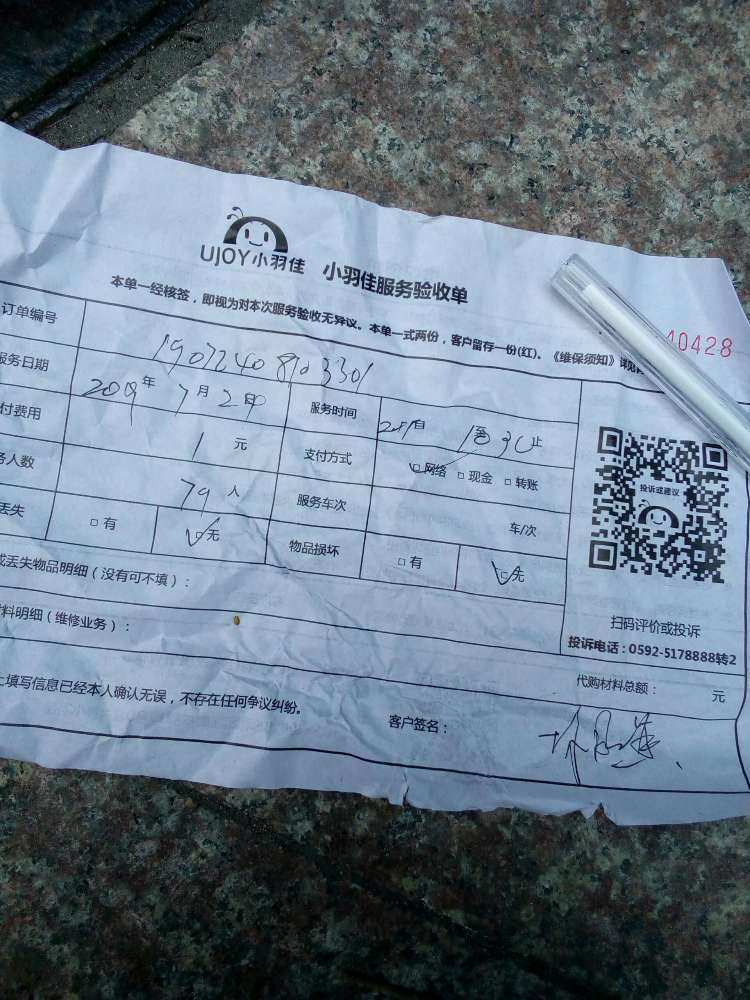 UJOY小羽佳 小羽佳服务验收单
本单一经核签，即视为对本次服务验收无异议。本单一式两份，客户留存一份(红)。《维保须知》详见
40428
订单编号
服务日期 2019年 7月 服务时间 自 至 30止
付费用 1元 支付方式 网络 现金 转账
务人数 人 服务车次 车/次
丢失 有 无 物品损坏 有 无
投诉或建议
或丢失物品明细（没有可不填）：
扫码评价或投诉
投诉电话：0592-5178888转2
材料明细（维修业务）：
代购材料总额： 元
上填写信息已经本人确认无误，不存在任何争议纠纷。 客户签名：